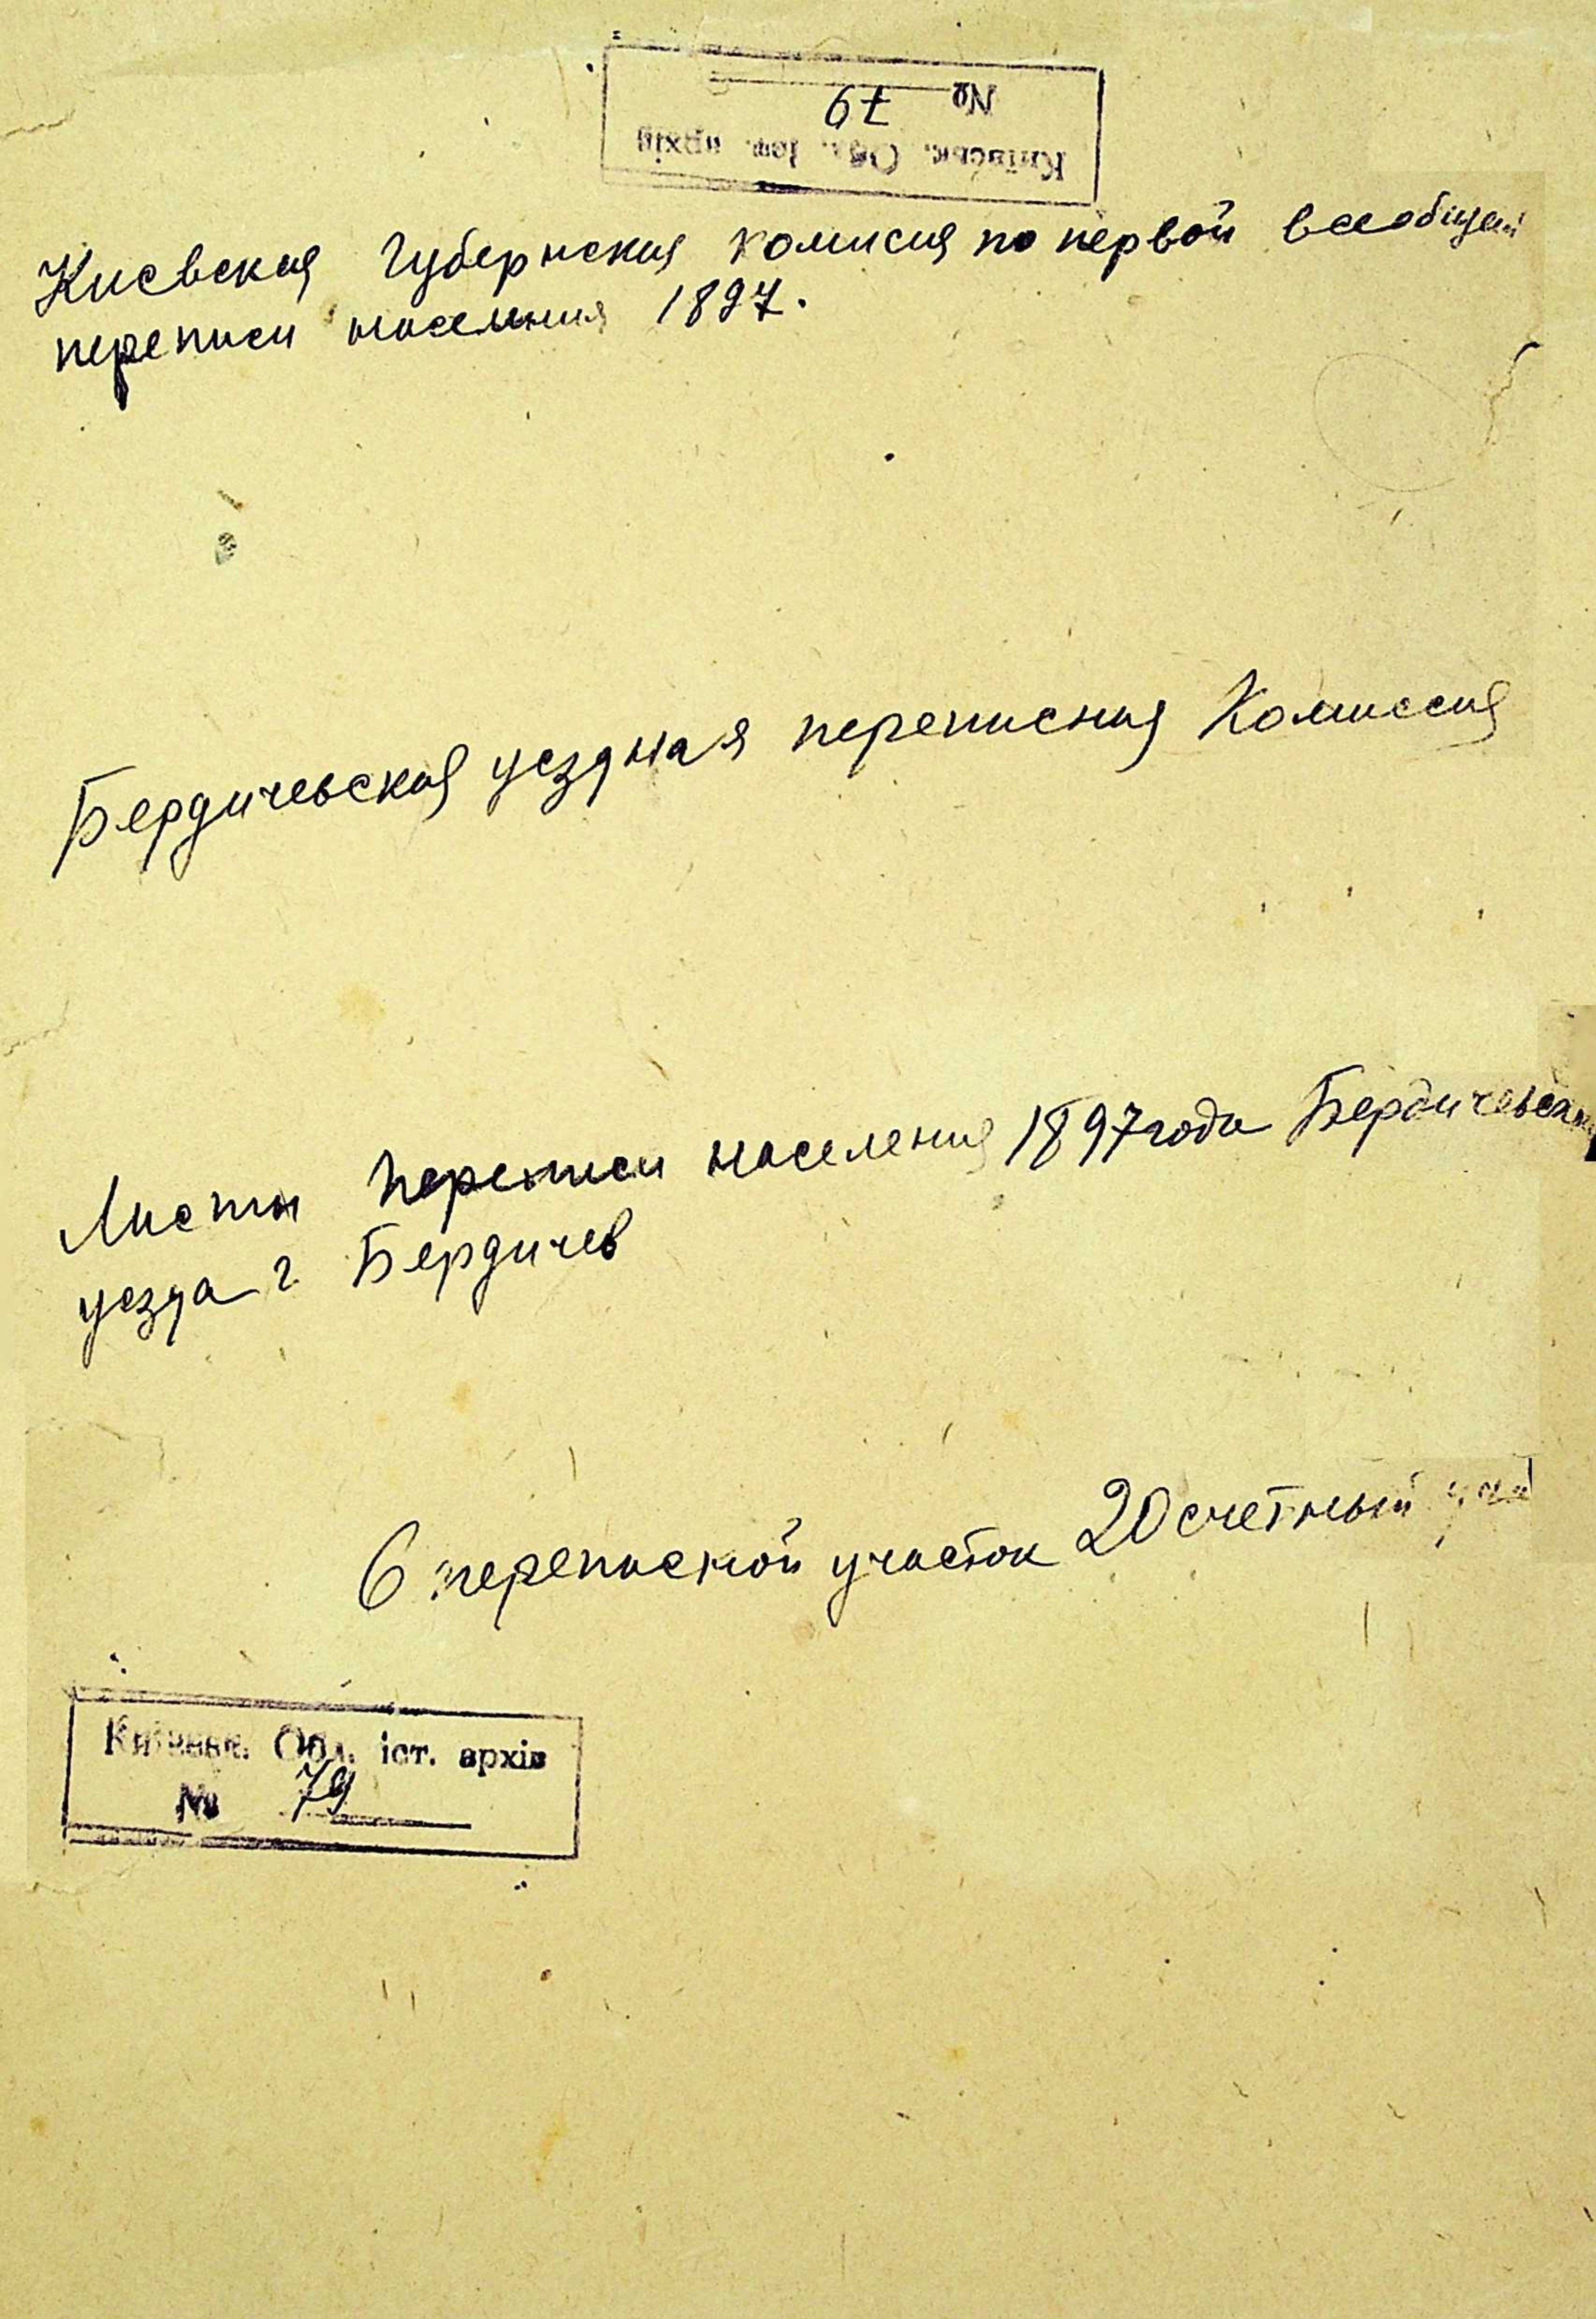 Київськ. Обл. іст. архів
№ 79
Киевская Губернская комисия по первой всеобщей
переписи населения 1897.
Бердичевская уездная переписная Комиссия
Листы переписи населения 1897 года Бердичевского
уезда г. Бердичев
6 переписной участок 20 счетный
Київськ. Обл. іст. архів
№ 79